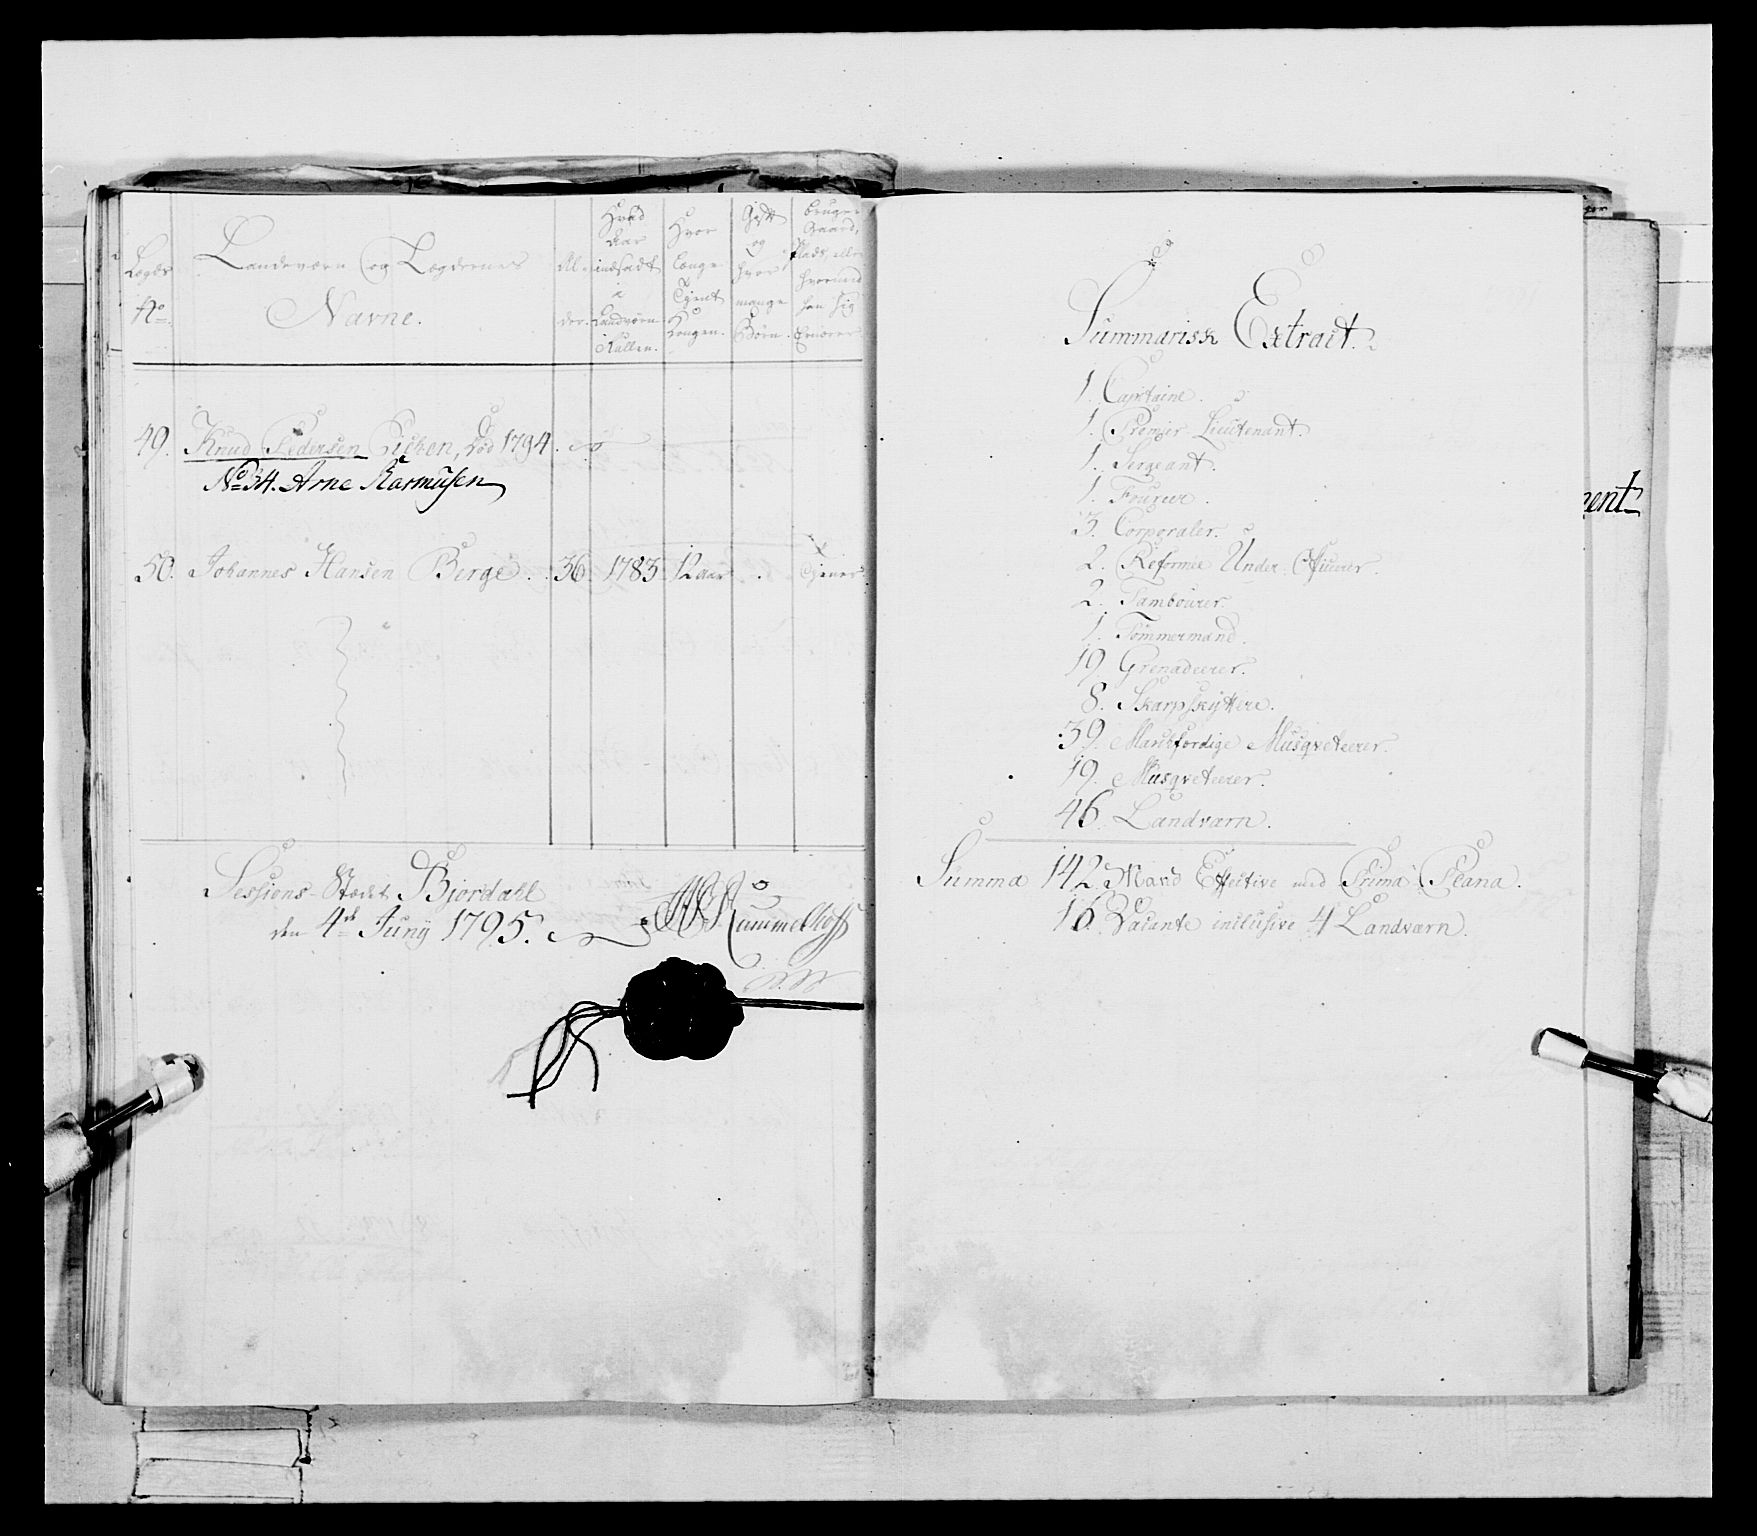 Lægds No.
Landeværn og Lægdernes Navne.
Al-der.
Hvad Aar indsadt i Landværn Rullen.
Hvor Længe Tient Kongen.
Gift og hvor mange Børn.
bruger Gaard, Plads, eller hvormed han sig Ernærer.
49. Knud Pedersen, død 1794.
No 34. Arne Rasmusen
50. Johannes Hansen Berge. 36. 1783. 12 aar . Tiener
Sessions-Stædet Bjordahl
den 4de Juny 1795.
Summarisk Extract.
1. Capitaine.
1. Premier Lieutenant.
1. Sergeant.
1. Fourer.
3. Corporaler.
2. Reformée Under Officerer.
2. Tambourer.
1. Tømmermand.
19. Grenadeerer.
8. Skarpskyttere.
39. Marchfærdige Musqveteerer.
19. Musqveteerer.
46. Landværn.
Summa 142. Mand Effective med Prima Plana.
16. Vacante inclusive 4 Landværn.
ment